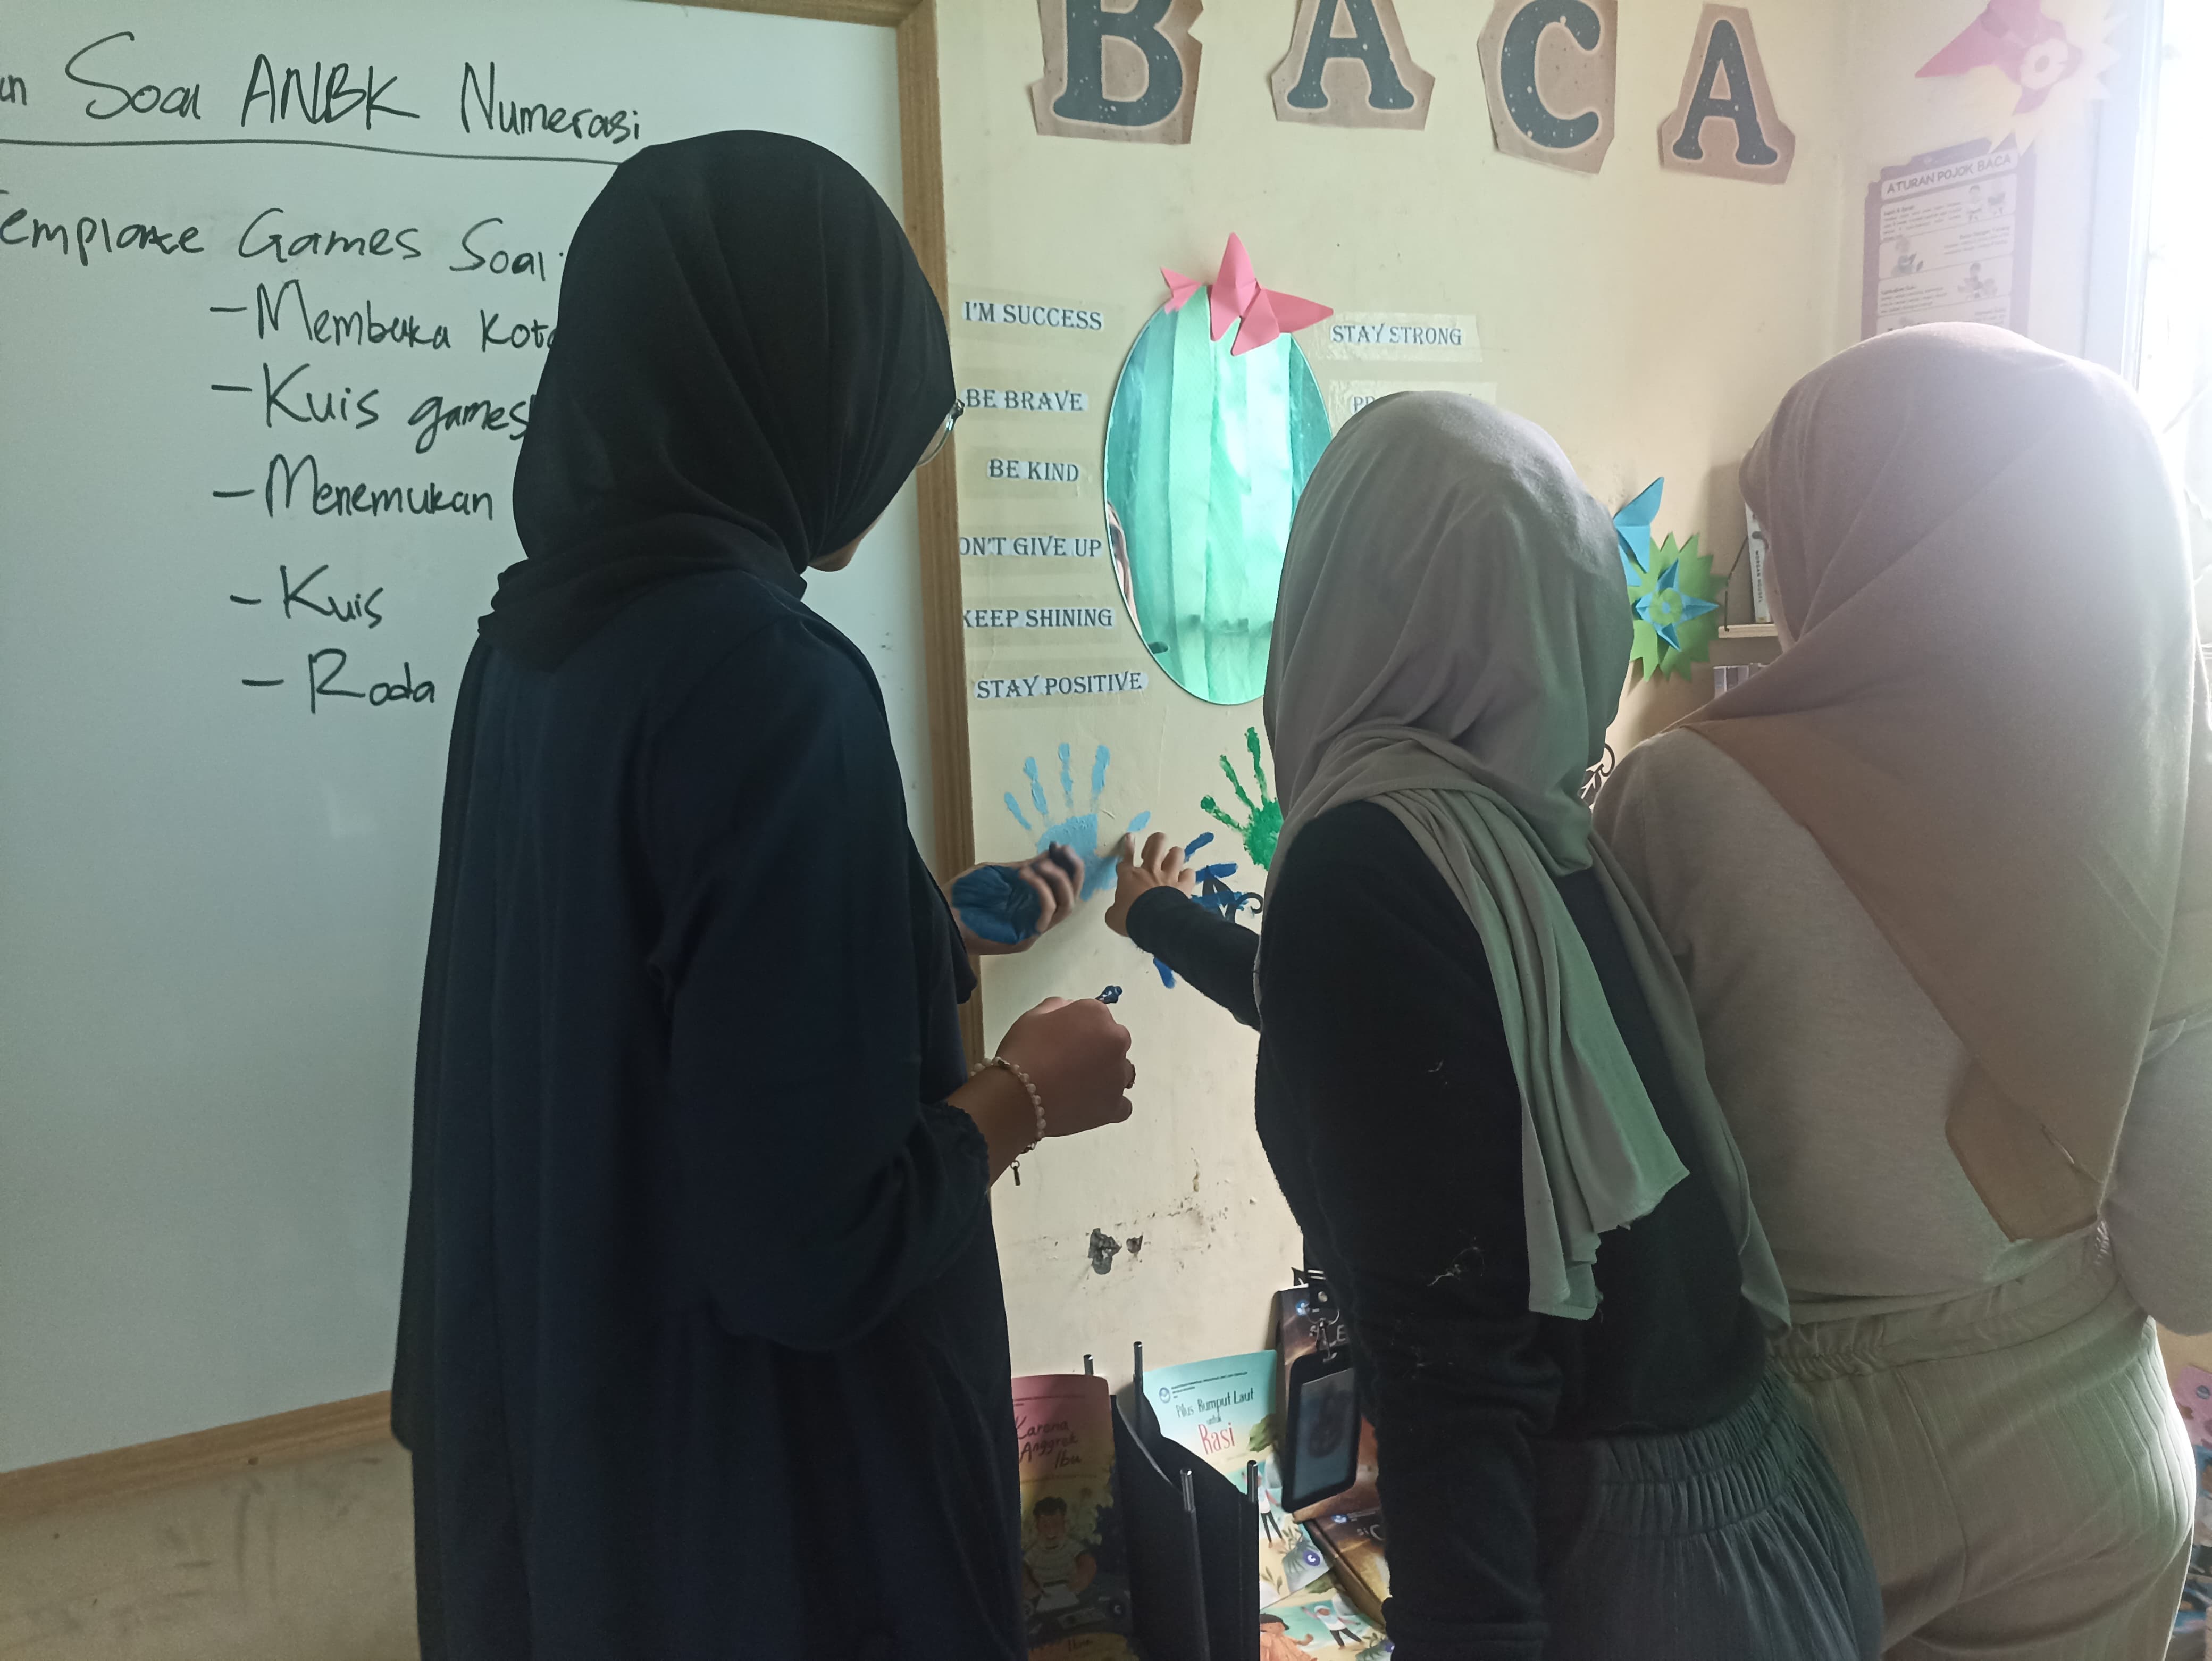 Soal ANBK Numerasi
Template Games Soal:
- Membuka
- Kuis games
- Menemukan
- Kuis
- Roda
BACA
ATURAN POJOK BACA
I'M SUCCESS
BE BRAVE
BE KIND
ON'T GIVE UP
KEEP SHINING
STAY POSITIVE
STAY STRONG
Karena
Anggrek
Ibu
Pilus Rumput Laut
untuk
Rasi